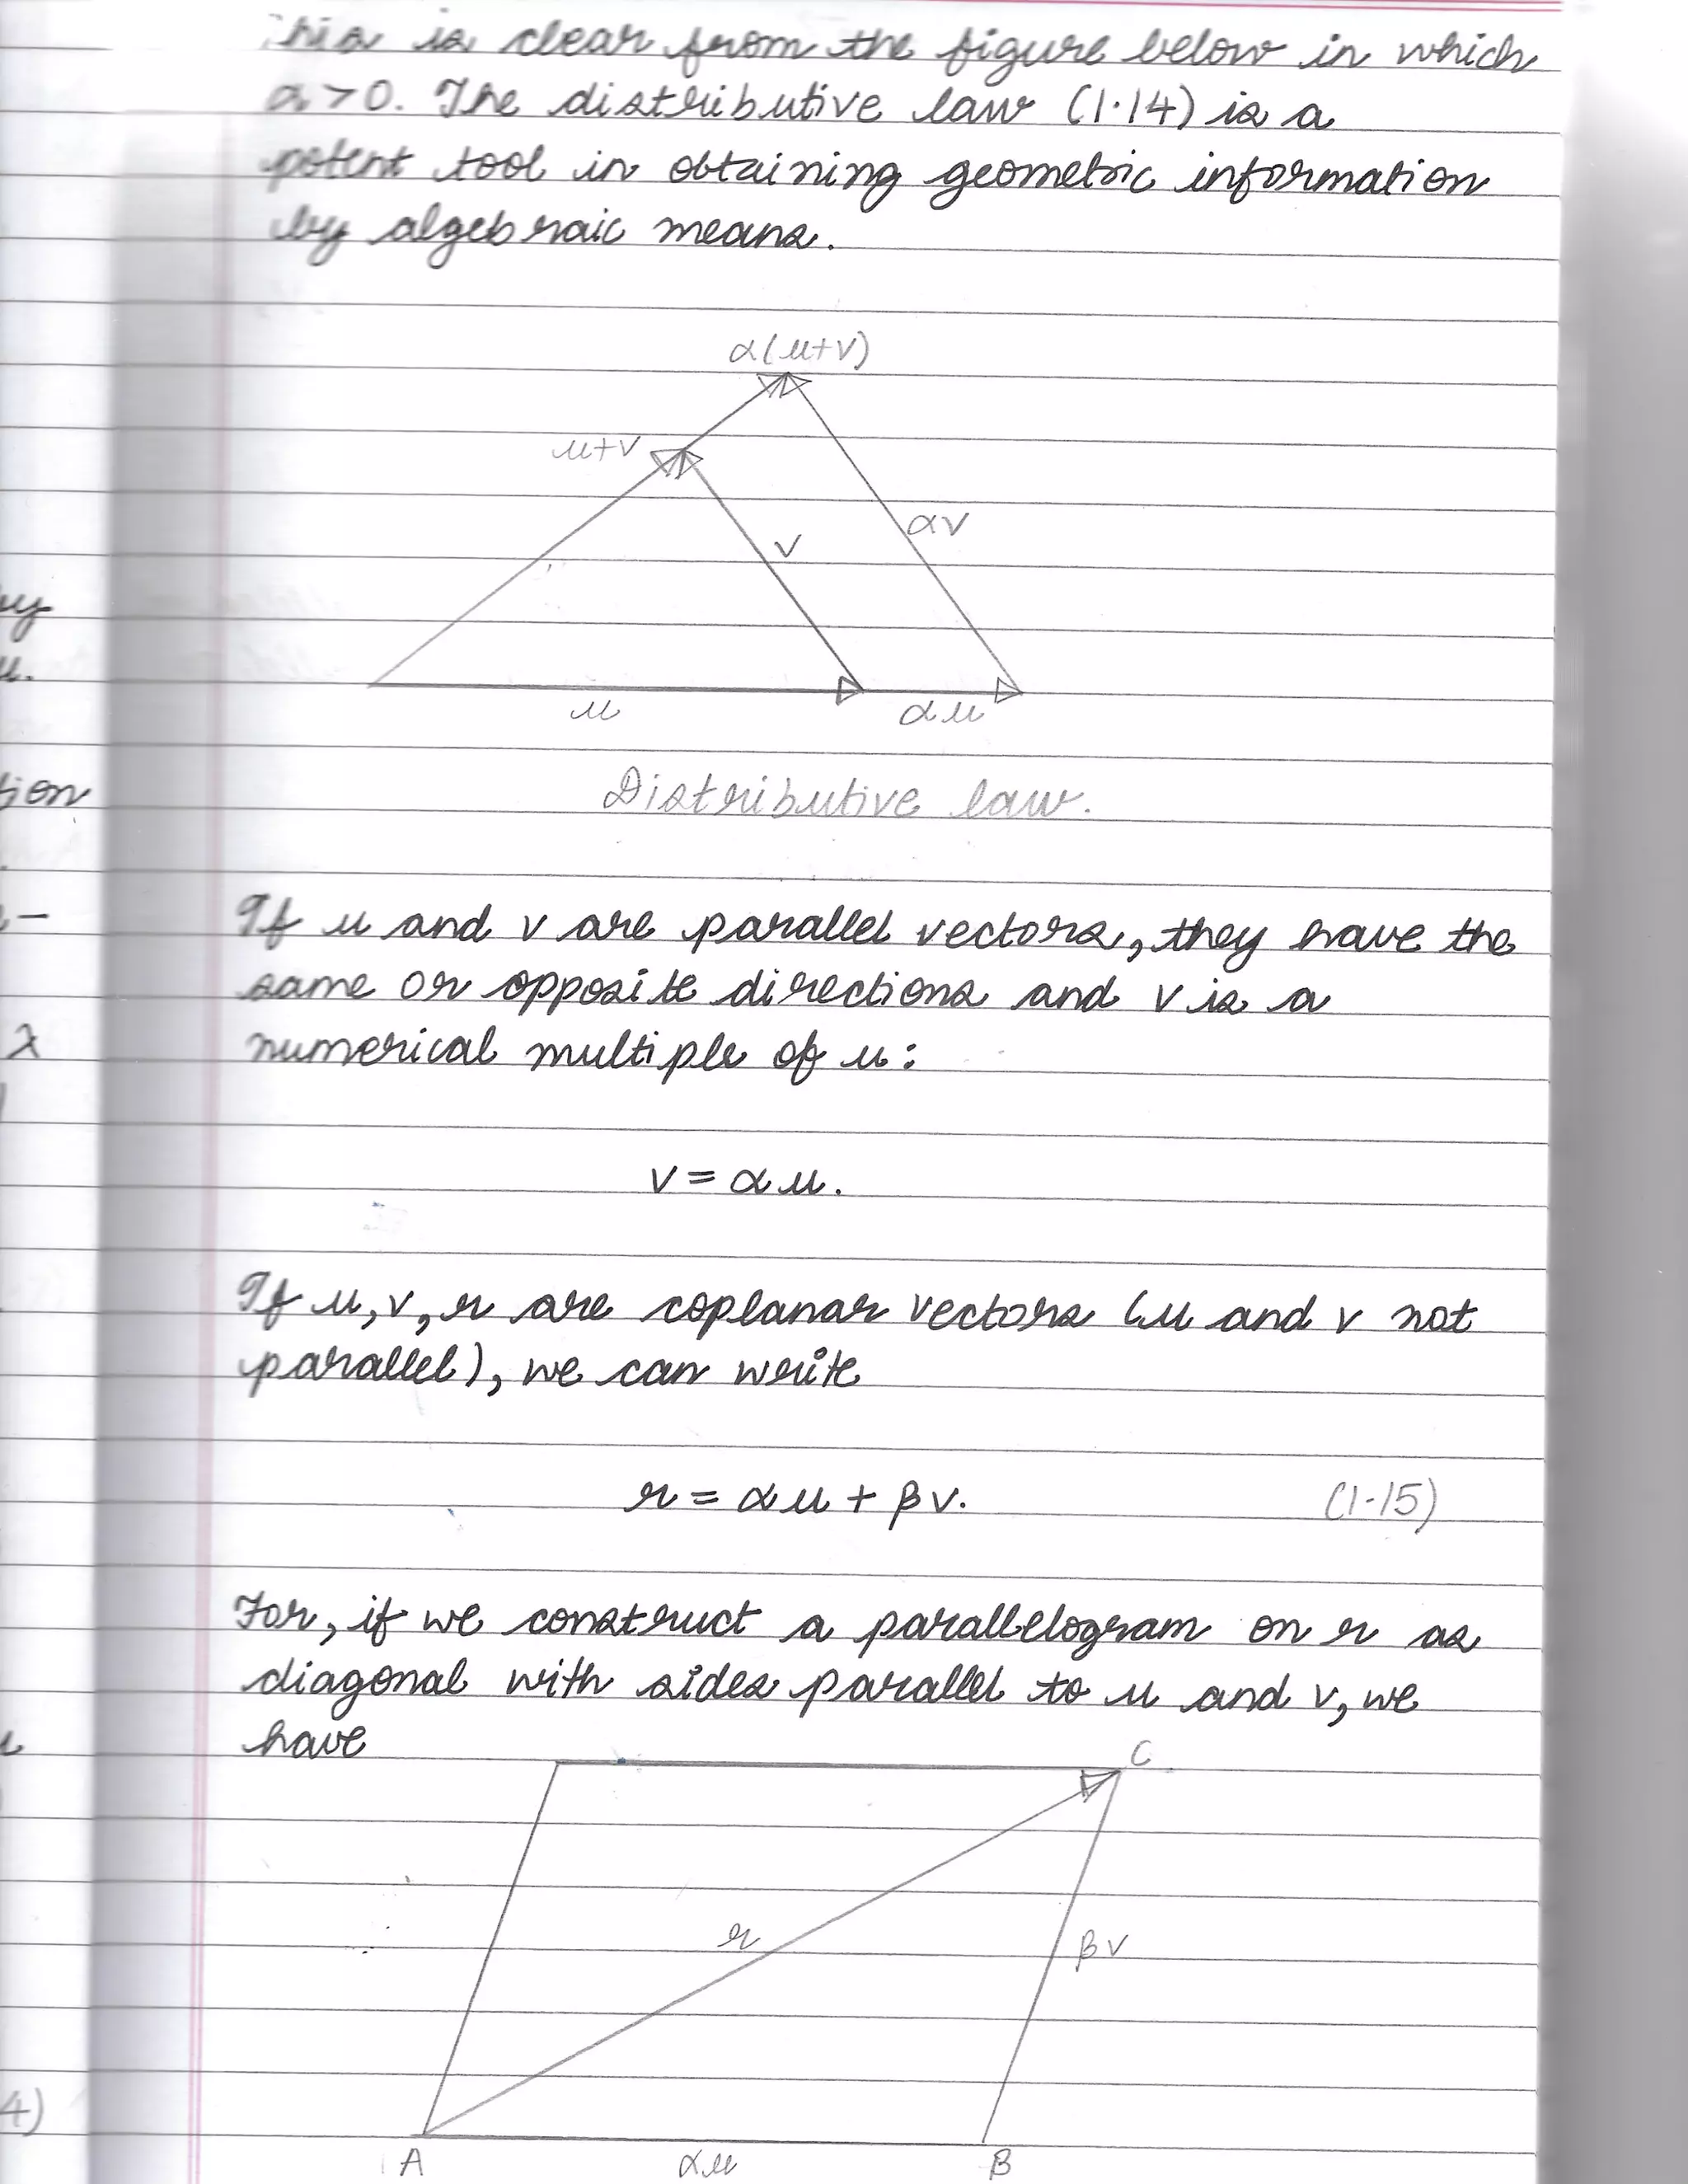 This is clear from the figure below in which
α > 0. The distributive law (1.14) is a
potent tool in obtaining geometric information
by algebraic means.
α(u+v)
u+v
αv
v
u
αu
Distributive law.
If u and v are parallel vectors, they have the
same or opposite directions and v is a
numerical multiple of u:
v = αu.
If u, v, r are coplanar vectors (u and v not
parallel), we can write
r = αu + βv. (1-15)
For, if we construct a parallelogram on r as
diagonal with sides parallel to u and v, we
have
C
r
βv
A
αu
B
tion
λ
4)